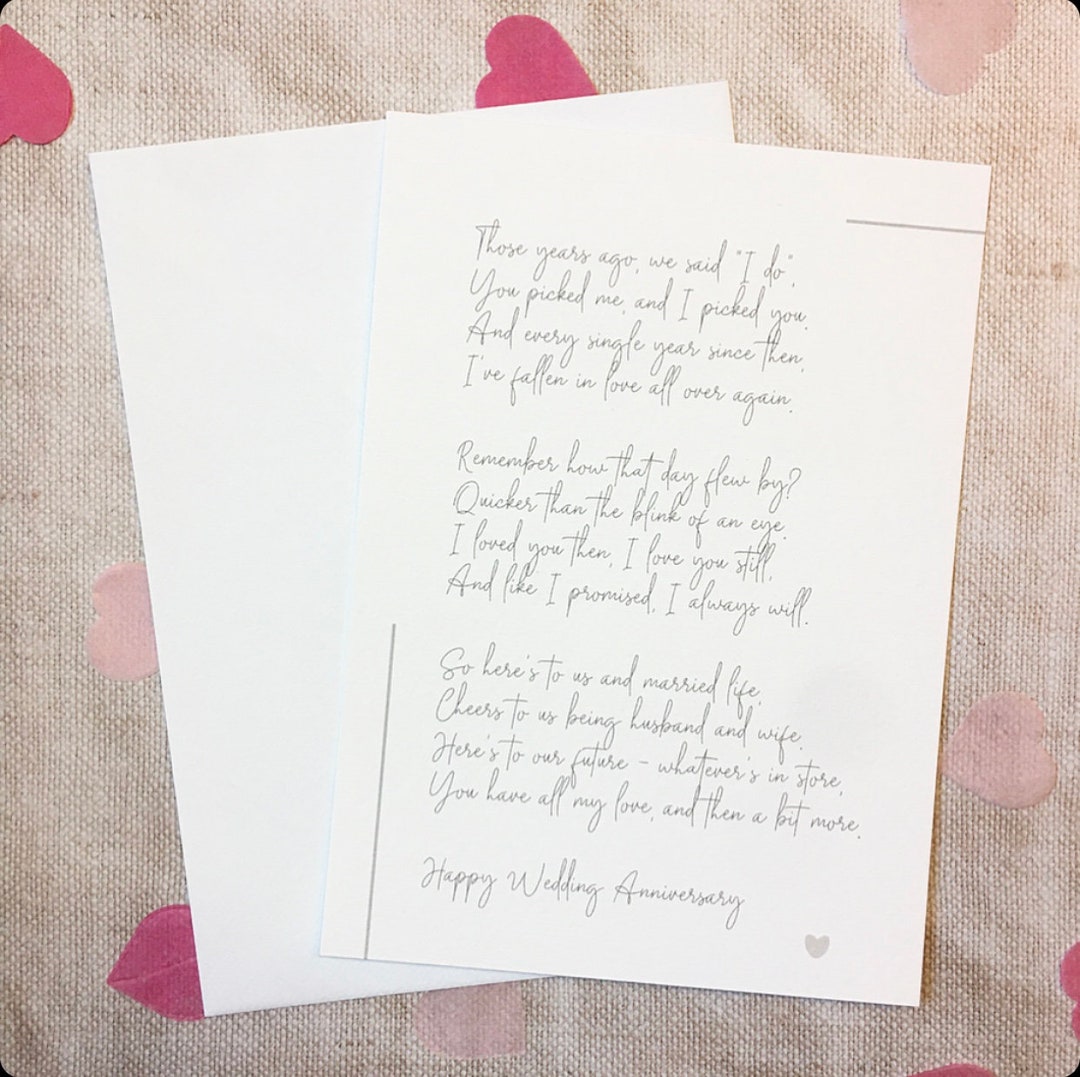 Those years ago, we said "I do",
You picked me, and I picked you.
And every single year since then,
I've fallen in love all over again.
Remember how that day flew by?
Quicker than the blink of an eye.
I loved you then, I love you still,
And like I promised, I always will.
So here's to us and married life,
Cheers to us being husband and wife.
Here's to our future - whatever's in store,
You have all my love, and then a bit more.
Happy Wedding Anniversary